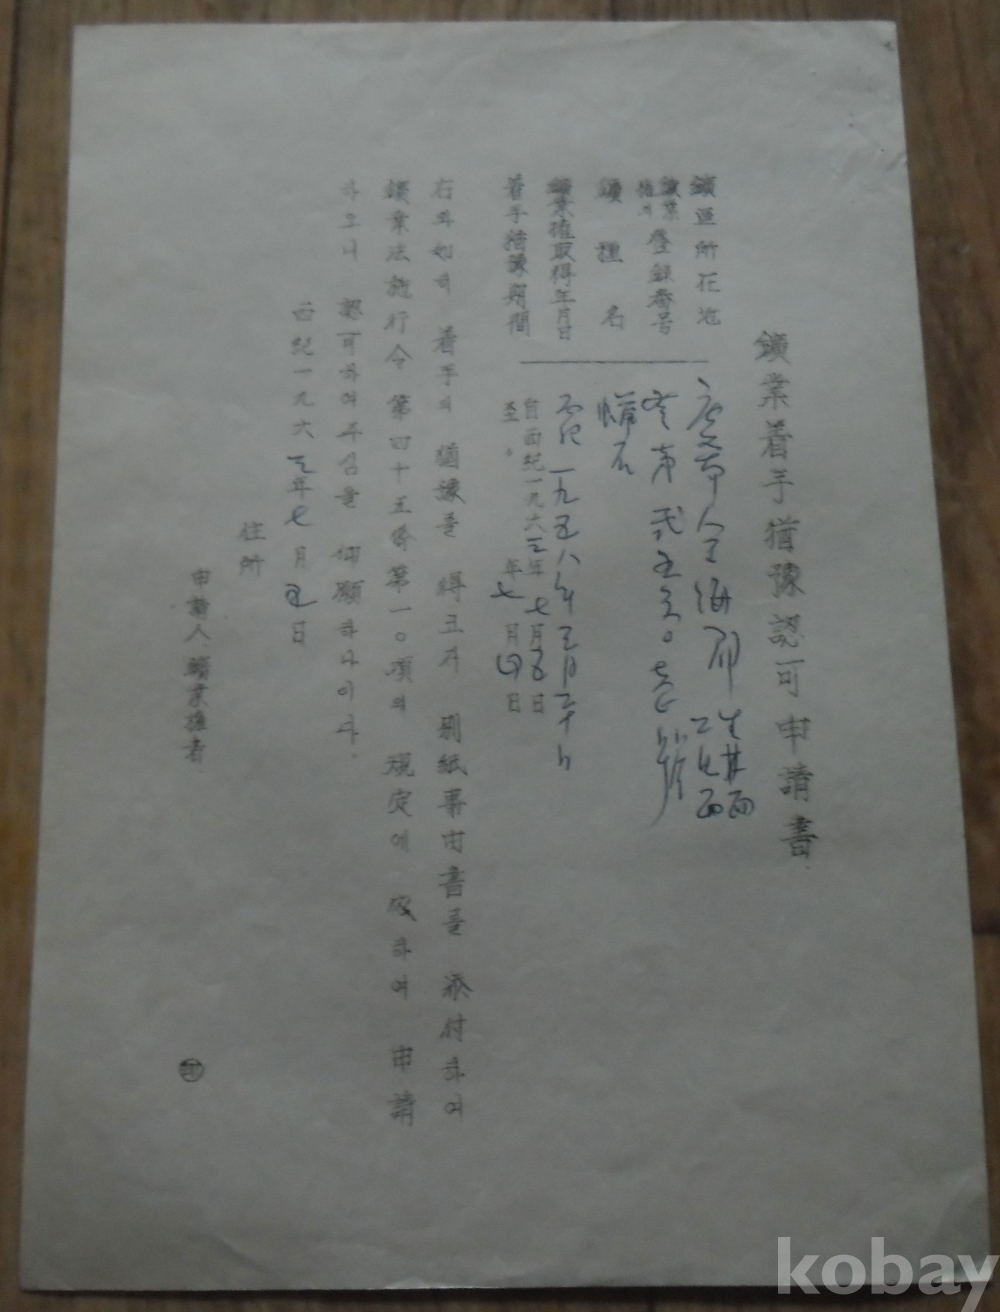 鑛業着手猶豫認可申請書
鑛區所在地
慶南 金海郡
鑛業權의 登録番号
鑛種名
鑛業權取得年月日
西紀一九五八年三月二十 日
着手猶豫期間
自西紀一九六三年七月五日
至 〃 年七月四日
右와如히 着手의 猶豫를 得코저 別紙事由書를 添付하여
鑛業法施行令第四十五條第一〇項의 規定에 依하여 申請
하오니 認可하여주심을 仰願하나이다.
西紀一九六三年七月五日
住所
申請人 鑛業權者
印
kobay